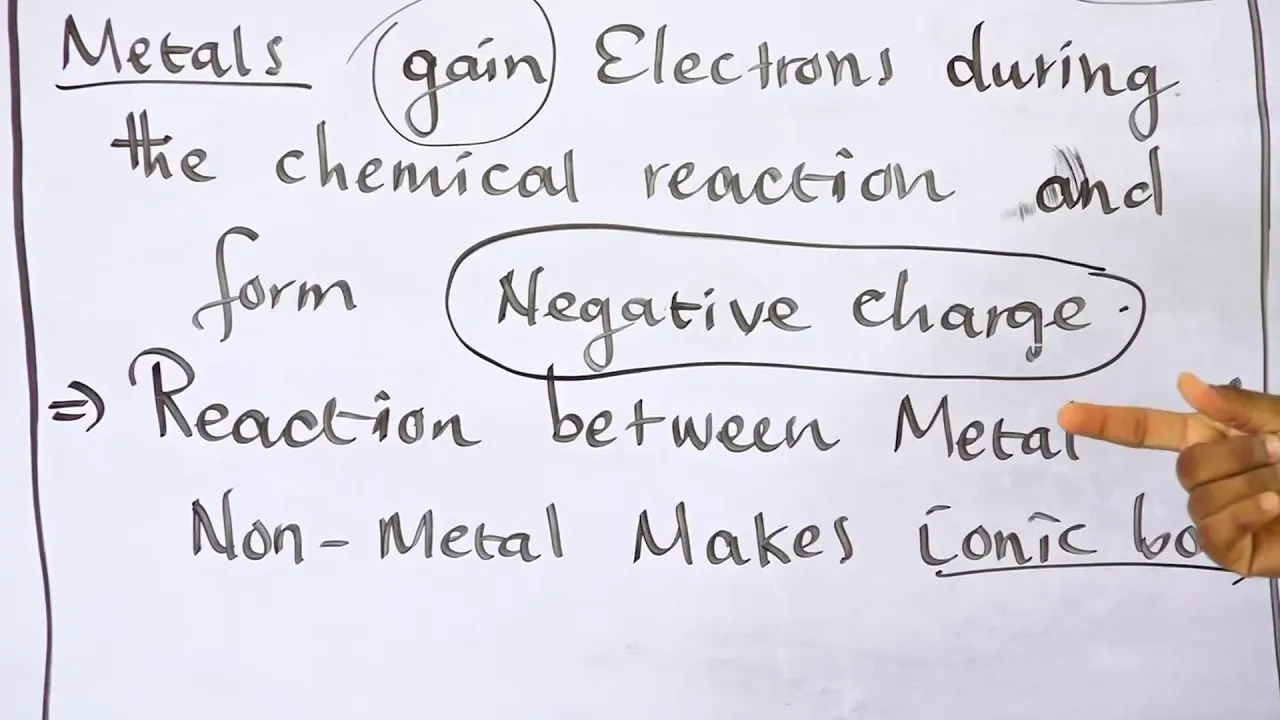 Metals gain Electrons during
the chemical reaction and
form Negative charge.
⇒ Reaction between Metal
Non-Metal Makes ionic